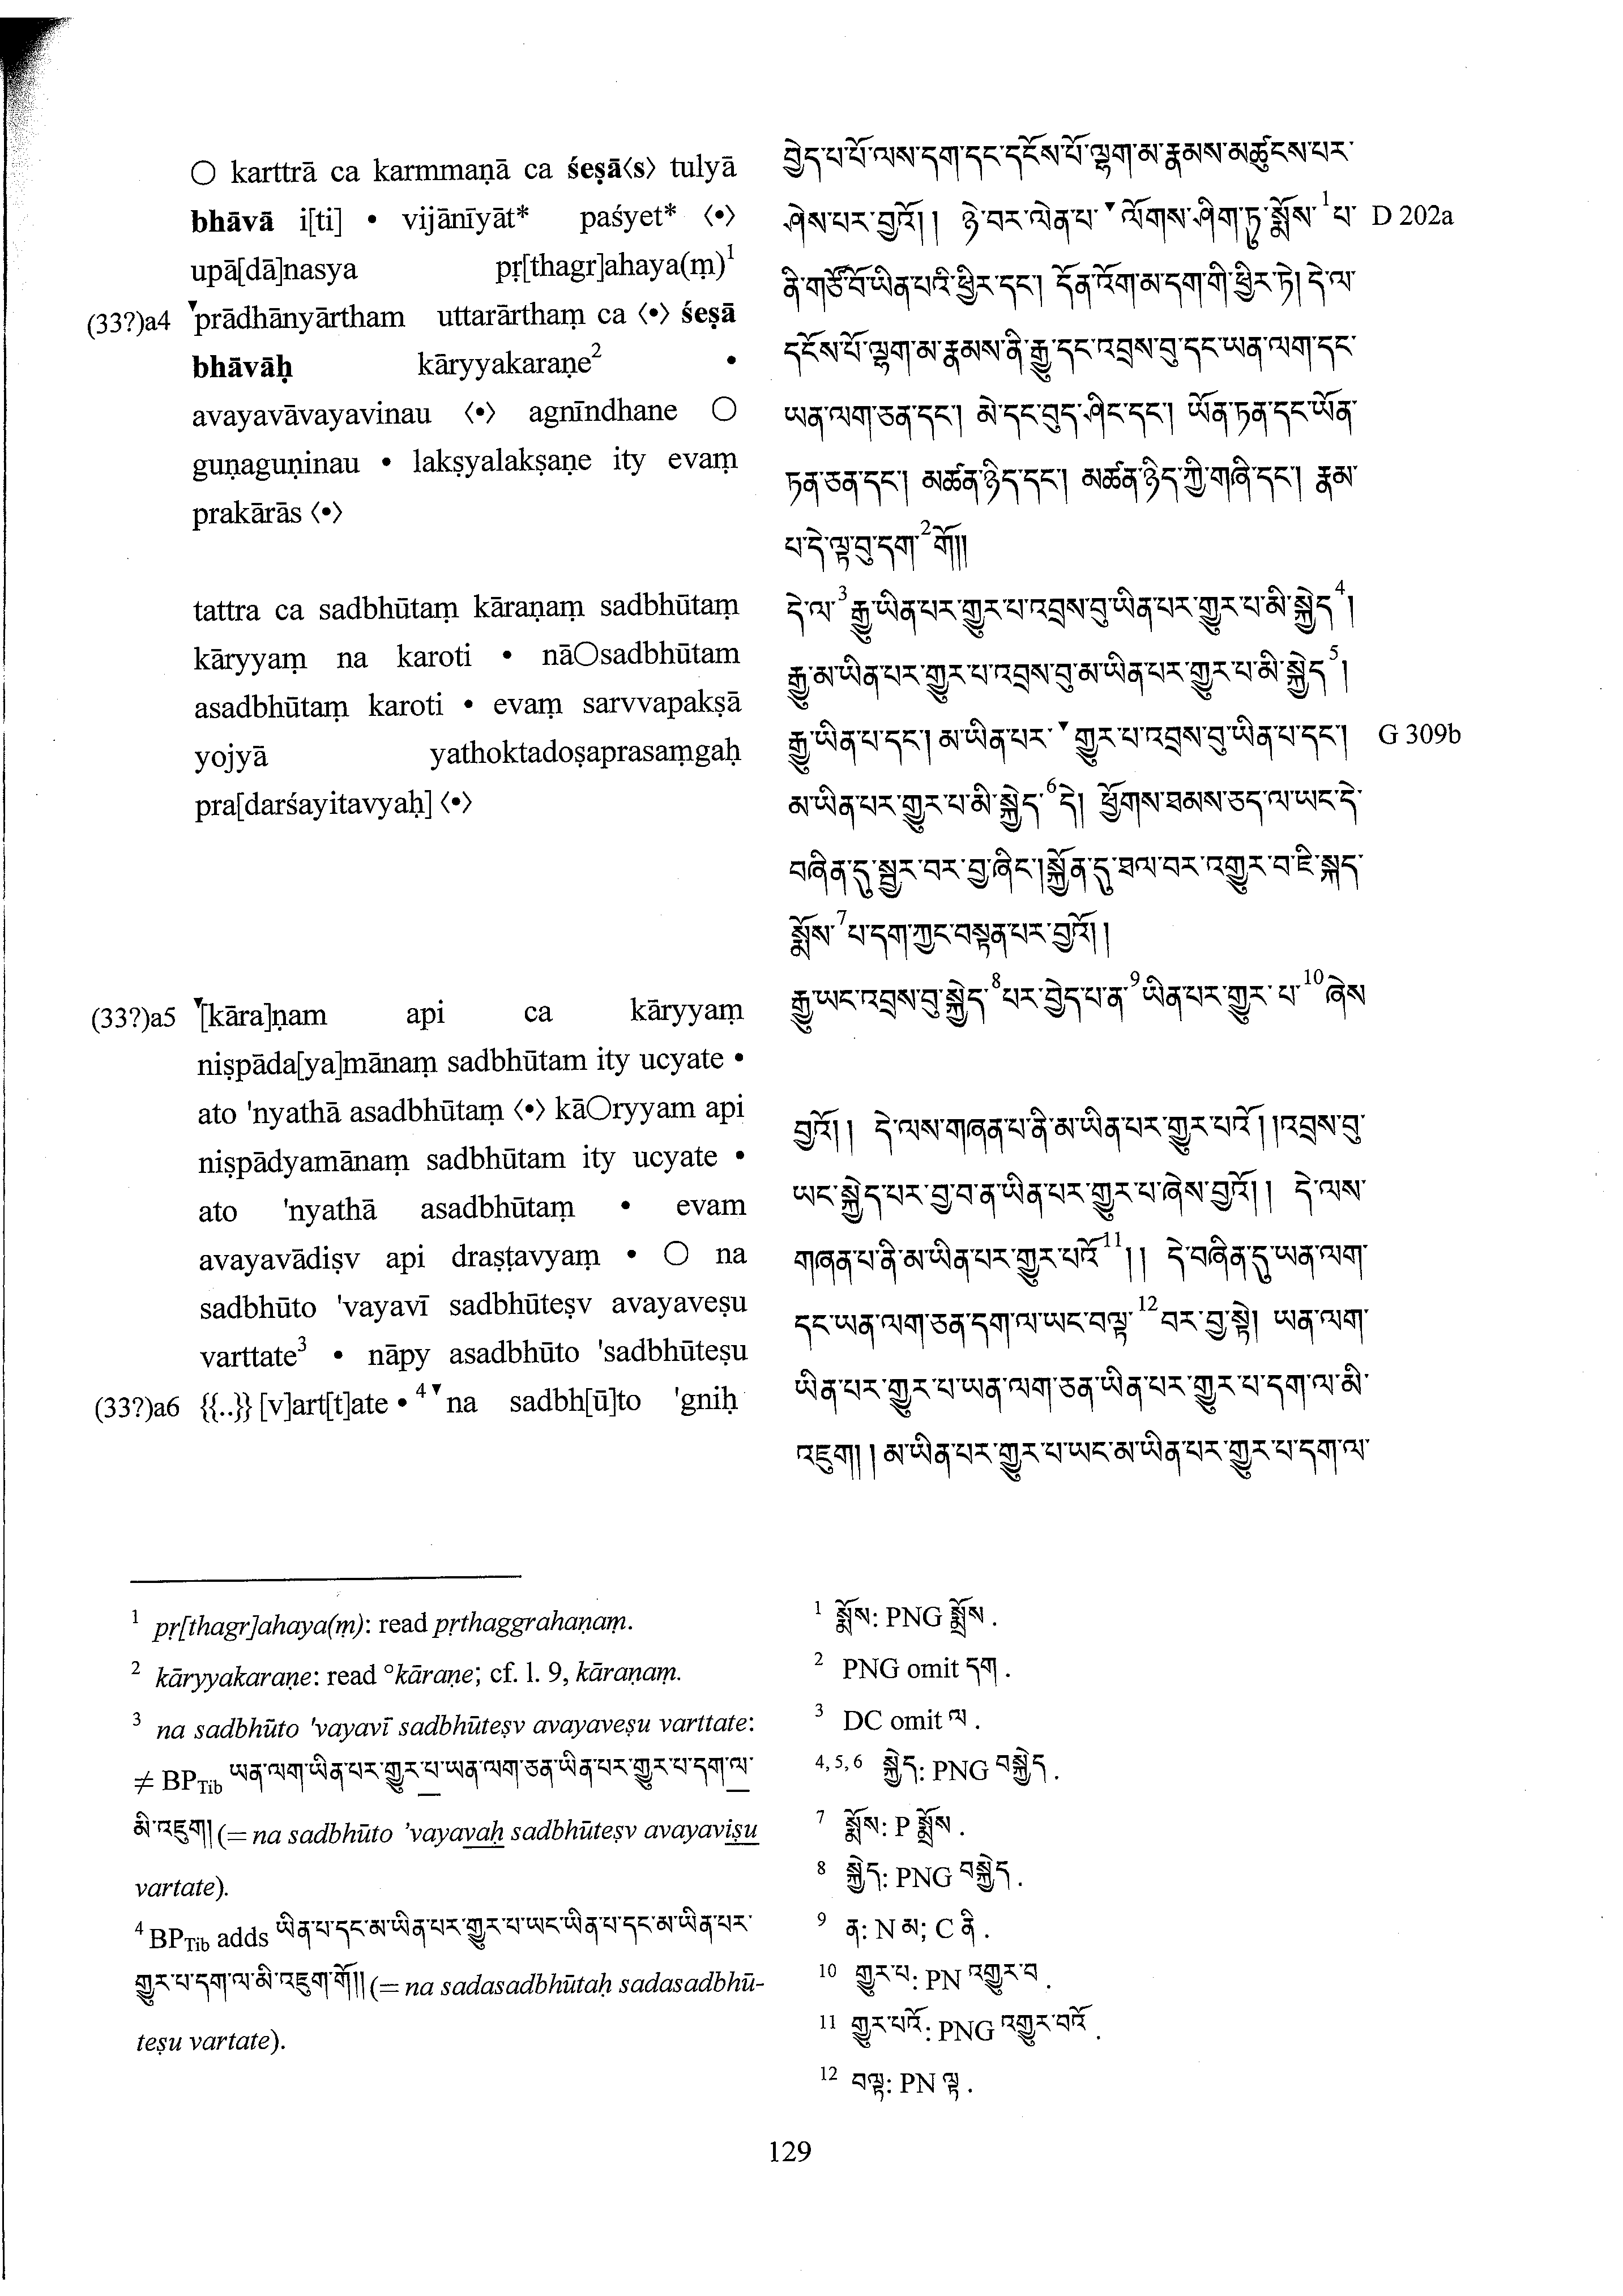 ○ karttrā ca karmmaṇā ca śeṣā⟨s⟩ tulyā
bhāvā i[ti] • vijānīyāt* paśyet* ⟨•⟩
upā[dā]nasya pṛ[thagr]ahaya(ṃ)1
(33?)a4 ▼prādhānyārtham uttarārthaṃ ca ⟨•⟩ śeṣā
bhāvāḥ kāryyakaraṇe2 •
avayavāvayavinau ⟨•⟩ agnīndhane ○
guṇaguṇinau • lakṣyalakṣaṇe ity evaṃ
prakārās ⟨•⟩
tattra ca sadbhūtaṃ kāraṇaṃ sadbhūtaṃ
kāryyaṃ na karoti • nā○sadbhūtam
asadbhūtaṃ karoti • evaṃ sarvvapakṣā
yojyā yathoktadoṣaprasaṃgaḥ
pra[darśayitavyaḥ] ⟨•⟩
(33?)a5 ▼[kāra]ṇam api ca kāryyaṃ
niṣpāda[ya]mānaṃ sadbhūtam ity ucyate •
ato 'nyathā asadbhūtaṃ ⟨•⟩ kā○ryyam api
niṣpādyamānaṃ sadbhūtam ity ucyate •
ato 'nyathā asadbhūtaṃ • evam
avayavādiṣv api draṣṭavyaṃ • ○ na
sadbhūto 'vayavī sadbhūteṣv avayaveṣu
varttate3 • nāpy asadbhūto 'sadbhūteṣu
(33?)a6 {{..}} [v]art[t]ate • 4▼na sadbh[ū]to 'gniḥ
བྱེད་པ་པོ་ལས་དག་དང་དངོས་པོ་ལྷག་མ་རྣམས་མཚུངས་པར་
ཤེས་པར་བྱའོ། ། ཉེ་བར་ལེན་པ་▼ལོགས་ཤིག་ཏུ་སྨོས་1པ་ D 202a
ནི་གཙོ་བོ་ཡིན་པའི་ཕྱིར་དང་། དོན་འོག་མ་དག་གི་ཕྱིར་ཏེ། དེ་ལ་
དངོས་པོ་ལྷག་མ་རྣམས་ནི་རྒྱུ་དང་འབྲས་བུ་དང་ཡན་ལག་དང་
ཡན་ལག་ཅན་དང་། མེ་དང་བུད་ཤིང་དང་། ཡོན་ཏན་དང་ཡོན་
ཏན་ཅན་དང་། མཚན་ཉིད་དང་། མཚན་ཉིད་ཀྱི་གཞི་དང་། རྣམ་
པ་དེ་ལྟ་བུ་དག་2གོ།།
དེ་ལ་3རྒྱུ་ཡིན་པར་གྱུར་པ་འབྲས་བུ་ཡིན་པར་གྱུར་པ་མི་སྐྱེད4།
རྒྱུ་མ་ཡིན་པར་གྱུར་པ་འབྲས་བུ་མ་ཡིན་པར་གྱུར་པ་མི་སྐྱེད5།
རྒྱུ་ཡིན་པ་དང་། མ་ཡིན་པར་▼གྱུར་པ་འབྲས་བུ་ཡིན་པ་དང་། G 309b
མ་ཡིན་པར་གྱུར་པ་མི་སྐྱེད་6དེ། ཕྱོགས་ཐམས་ཅད་ལ་ཡང་དེ་
བཞིན་དུ་སྦྱར་བར་བྱ་ཞིང་།སྐྱོན་དུ་ཐལ་བར་འགྱུར་བ་ཇི་སྐད་
སྨོས་7པ་དག་ཀྱང་བསྟན་པར་བྱའོ། །
རྒྱུ་ཡང་འབྲས་བུ་སྐྱེད་8པར་བྱེད་པ་ན་9ཡིན་པར་གྱུར་པ་10ཞེས
བྱའོ། ། དེ་ལས་གཞན་པ་ནི་མ་ཡིན་པར་གྱུར་པའོ། །འབྲས་བུ་
ཡང་སྐྱེད་པར་བྱ་བ་ན་ཡིན་པར་གྱུར་པ་ཞེས་བྱའོ། ། དེ་ལས་
གཞན་པ་ནི་མ་ཡིན་པར་གྱུར་པའོ11། ། དེ་བཞིན་དུ་ཡན་ལག་
དང་ཡན་ལག་ཅན་དག་ལ་ཡང་བལྟ་12བར་བྱ་སྟེ། ཡན་ལག་
ཡིན་པར་གྱུར་པ་ཡན་ལག་ཅན་ཡིན་པར་གྱུར་པ་དག་ལ་མི་
འཇུག། །མ་ཡིན་པར་གྱུར་པ་ཡང་མ་ཡིན་པར་གྱུར་པ་དག་ལ་
1 pṛ[thagr]ahaya(ṃ): read pṛthaggrahaṇaṃ.
2 kāryyakaraṇe: read °kāraṇe; cf. l. 9, kāraṇaṃ.
3 na sadbhūto 'vayavī sadbhūteṣv avayaveṣu varttate:
≠ BPTib ཡན་ལག་ཡིན་པར་གྱུར་པ་ཡན་ལག་ཅན་ཡིན་པར་གྱུར་པ་དག་ལ་
མི་འཇུག། (= na sadbhūto 'vayavaḥ sadbhūteṣv avayaviṣu
vartate).
4 BPTib adds ཡིན་པ་དང་མ་ཡིན་པར་གྱུར་པ་ཡང་ཡིན་པ་དང་མ་ཡིན་པར་
གྱུར་པ་དག་ལ་མི་འཇུག་གོ།། (= na sadasadbhūtaḥ sadasadbhū-
teṣu vartate).
1 སྨོས: PNG སྨྲོས .
2 PNG omit དག .
3 DC omit ལ .
4, 5, 6 སྐྱེད: PNG བསྐྱེད .
7 སྨོས: P སྨྲོས .
8 སྐྱེད: PNG བསྐྱེད .
9 ན: N མ; C ནི .
10 གྱུར་པ: PN འགྱུར་བ .
11 གྱུར་པའོ: PNG འགྱུར་བའོ .
12 བལྟ: PN ལྟ .
129